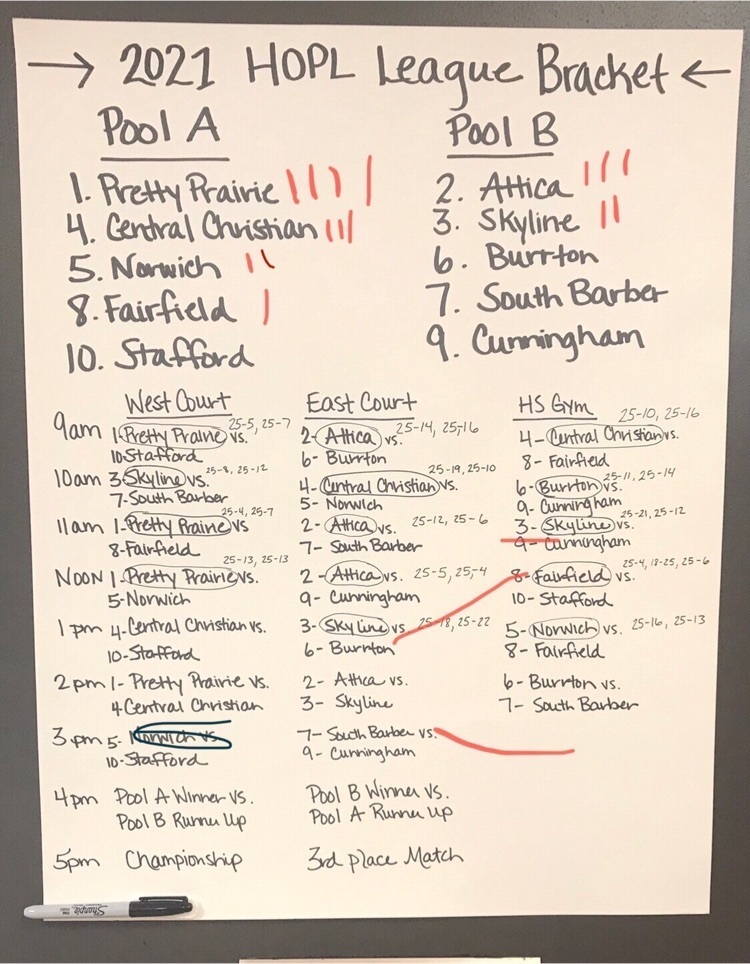 → 2021 HOPL League Bracket ←
Pool A
1. Pretty Prairie
4. Central Christian
5. Norwich
8. Fairfield
10. Stafford
Pool B
2. Attica
3. Skyline
6. Burrton
7. South Barber
9. Cunningham
West Court East Court HS Gym
25-5, 25-7 25-14, 25-16 25-10, 25-16
9am 1-Pretty Prairie vs. 2-Attica vs. 4-Central Christian vs.
10-Stafford 6-Burrton 8-Fairfield
25-8, 25-12 25-19, 25-10 25-11, 25-14
10am 3-Skyline vs. 4-Central Christian vs. 6-Burrton vs.
7-South Barber 5-Norwich 9-Cunningham
25-4, 25-7 25-12, 25-6 25-21, 25-12
11am 1-Pretty Prairie vs 2-Attica vs. 3-Skyline vs.
8-Fairfield 7-South Barber 9-Cunningham
25-13, 25-13 25-5, 25-4 25-4, 18-25, 25-6
Noon 1-Pretty Prairie vs. 2-Attica vs. 8-Fairfield vs.
5-Norwich 9-Cunningham 10-Stafford
25-18, 25-22 25-16, 25-13
1pm 4-Central Christian vs. 3-Skyline vs. 5-Norwich vs.
10-Stafford 6-Burrton 8-Fairfield
2pm 1-Pretty Prairie vs. 2-Attica vs. 6-Burrton vs.
4 Central Christian 3-Skyline 7-South Barber
3pm 5-Norwich vs. 7-South Barber vs.
10-Stafford 9-Cunningham
4pm Pool A Winner vs. Pool B Winner vs.
Pool B Runner Up Pool A Runner Up
5pm Championship 3rd place Match
Sharpie